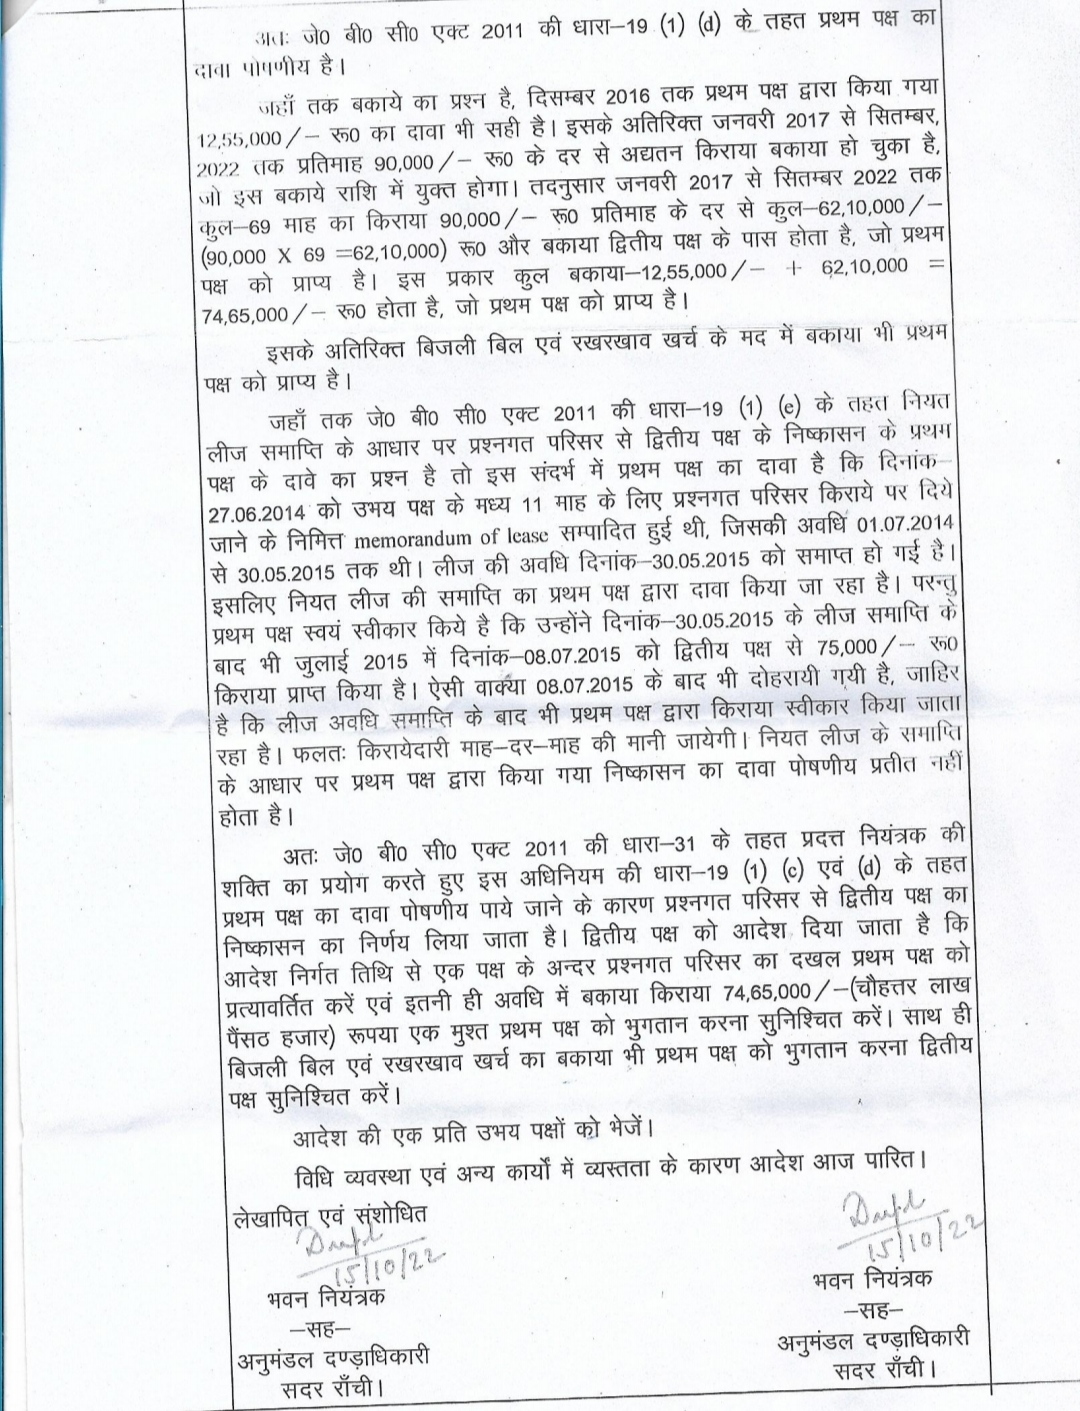 अतः जे0 बी0 सी0 एक्ट 2011 की धारा–19 (1) (d) के तहत प्रथम पक्ष का
दावा पोषणीय है।
जहाँ तक बकाये का प्रश्न है, दिसम्बर 2016 तक प्रथम पक्ष द्वारा किया गया
12,55,000/– रू0 का दावा भी सही है। इसके अतिरिक्त जनवरी 2017 से सितम्बर,
2022 तक प्रतिमाह 90,000/– रू0 के दर से अद्यतन किराया बकाया हो चुका है,
जो इस बकाये राशि में युक्त होगा। तदनुसार जनवरी 2017 से सितम्बर 2022 तक
कुल–69 माह का किराया 90,000/– रू0 प्रतिमाह के दर से कुल–62,10,000/–
(90,000 X 69 =62,10,000) रू0 और बकाया द्वितीय पक्ष के पास होता है, जो प्रथम
पक्ष को प्राप्य है। इस प्रकार कुल बकाया–12,55,000/– + 62,10,000 =
74,65,000/– रू0 होता है, जो प्रथम पक्ष को प्राप्य है।
इसके अतिरिक्त बिजली बिल एवं रखरखाव खर्च के मद में बकाया भी प्रथम
पक्ष को प्राप्य है।
जहाँ तक जे0 बी0 सी0 एक्ट 2011 की धारा–19 (1) (e) के तहत नियत
लीज समाप्ति के आधार पर प्रश्नगत परिसर से द्वितीय पक्ष के निष्कासन के प्रथम
पक्ष के दावे का प्रश्न है तो इस संदर्भ में प्रथम पक्ष का दावा है कि दिनांक–
27.06.2014 को उभय पक्ष के मध्य 11 माह के लिए प्रश्नगत परिसर किराये पर दिये
जाने के निमित्त memorandum of lease सम्पादित हुई थी, जिसकी अवधि 01.07.2014
से 30.05.2015 तक थी। लीज की अवधि दिनांक–30.05.2015 को समाप्त हो गई है।
इसलिए नियत लीज की समाप्ति का प्रथम पक्ष द्वारा दावा किया जा रहा है। परन्तु
प्रथम पक्ष स्वयं स्वीकार किये है कि उन्होंने दिनांक–30.05.2015 के लीज समाप्ति के
बाद भी जुलाई 2015 में दिनांक–08.07.2015 को द्वितीय पक्ष से 75,000/– रू0
किराया प्राप्त किया है। ऐसी वाक्या 08.07.2015 के बाद भी दोहरायी गयी है, जाहिर
है कि लीज अवधि समाप्ति के बाद भी प्रथम पक्ष द्वारा किराया स्वीकार किया जाता
रहा है। फलतः किरायेदारी माह–दर–माह की मानी जायेगी। नियत लीज के समाप्ति
के आधार पर प्रथम पक्ष द्वारा किया गया निष्कासन का दावा पोषणीय प्रतीत नहीं
होता है।
अतः जे0 बी0 सी0 एक्ट 2011 की धारा–31 के तहत प्रदत्त नियंत्रक की
शक्ति का प्रयोग करते हुए इस अधिनियम की धारा–19 (1) (c) एवं (d) के तहत
प्रथम पक्ष का दावा पोषणीय पाये जाने के कारण प्रश्नगत परिसर से द्वितीय पक्ष का
निष्कासन का निर्णय लिया जाता है। द्वितीय पक्ष को आदेश दिया जाता है कि
आदेश निर्गत तिथि से एक पक्ष के अन्दर प्रश्नगत परिसर का दखल प्रथम पक्ष को
प्रत्यावर्तित करें एवं इतनी ही अवधि में बकाया किराया 74,65,000/–(चौहत्तर लाख
पैंसठ हजार) रूपया एक मुश्त प्रथम पक्ष को भुगतान करना सुनिश्चित करें। साथ ही
बिजली बिल एवं रखरखाव खर्च का बकाया भी प्रथम पक्ष को भुगतान करना द्वितीय
पक्ष सुनिश्चित करें।
आदेश की एक प्रति उभय पक्षों को भेजें।
विधि व्यवस्था एवं अन्य कार्यों में व्यस्तता के कारण आदेश आज पारित।
लेखापित एवं संशोधित
15/10/22
भवन नियंत्रक
–सह–
अनुमंडल दण्डाधिकारी
सदर राँची।
15/10/22
भवन नियंत्रक
–सह–
अनुमंडल दण्डाधिकारी
सदर राँची।